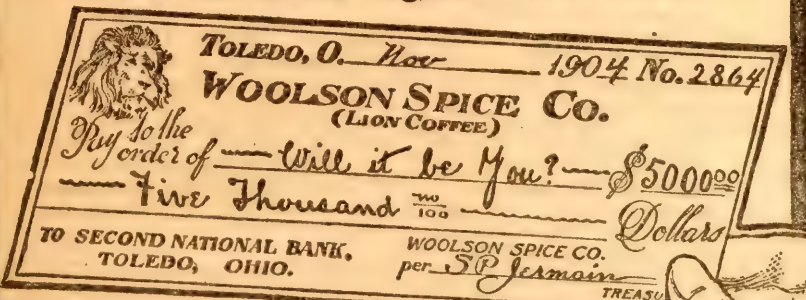 TOLEDO, O. Nov 1904 No. 2864
WOOLSON SPICE CO.
(LION COFFEE)
Pay to the
order of Will it be You? $5000 00
Five Thousand no/100 Dollars
TO SECOND NATIONAL BANK,
TOLEDO, OHIO.
WOOLSON SPICE CO.
per S.P. Jermain
TREASU